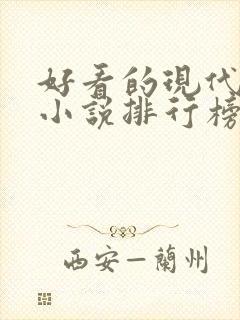 好看的现代
小说排行榜
西安—蘭州